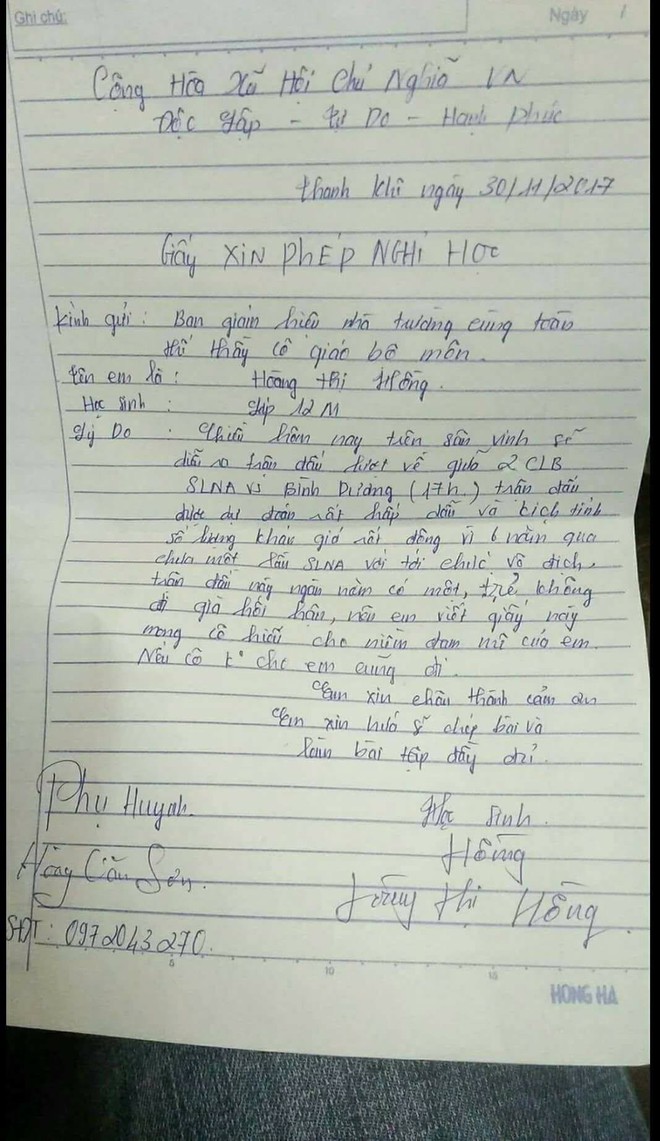 Ghi chú:
Ngày /
Cộng Hòa Xã Hội Chủ Nghĩa VN
Độc Lập - Tự Do - Hạnh Phúc
Thanh Khê ngày 30/11/2017
Giấy XIN PHÉP NGHỈ HỌC
Kính gửi: Ban giám hiệu nhà trường cùng toàn
thể thầy cô giáo bộ môn.
Tên em là: Hoàng Thị Hồng.
Học sinh: Lớp 12M
Lý Do: Chiều hôm nay trên sân vinh sẽ
diễn ra trận đấu lượt về giữa 2 CLB
SLNA vs Bình Dương (17h.) trận đấu
được dự đoán rất hấp dẫn và kịch tính
số lượng khán giả rất đông vì 6 năm qua
chưa một lần SLNA với tới chức vô địch,
trận đấu này ngàn năm có một, trẻ không
đi già hối hận, nên em viết giấy này
mong cô hiểu cho niềm đam mê của em.
Nếu cô k° cho em cũng đi.
Em xin chân thành cảm ơn
Em xin hứa sẽ chép bài và
làm bài tập đầy đủ.
Phụ Huynh. Học sinh.
Hồng
Hoàng Văn Sơn. Hoàng Thị Hồng.
SĐT: 0972043270.
5 10 15
HONG HA